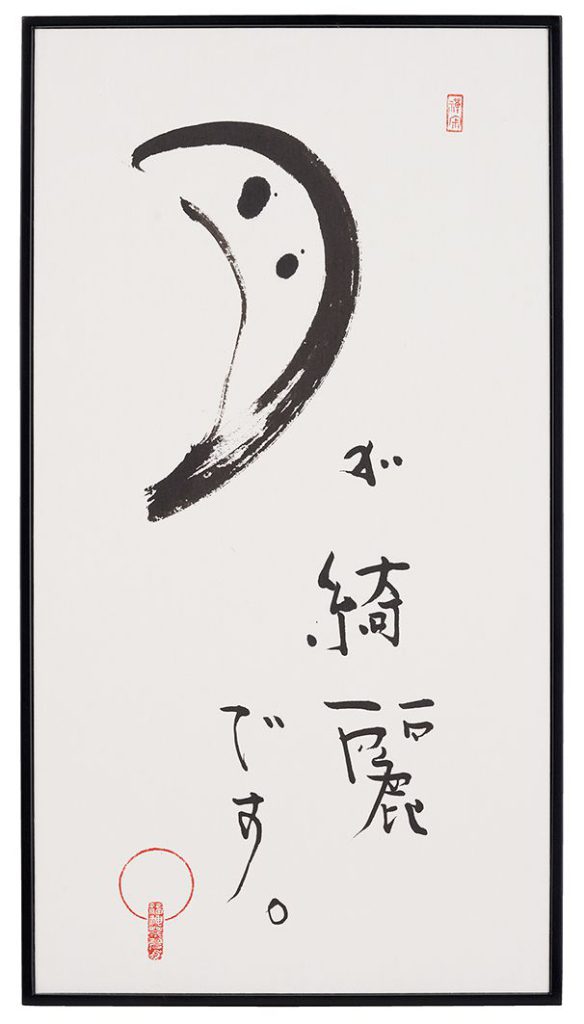 月が綺麗
です。